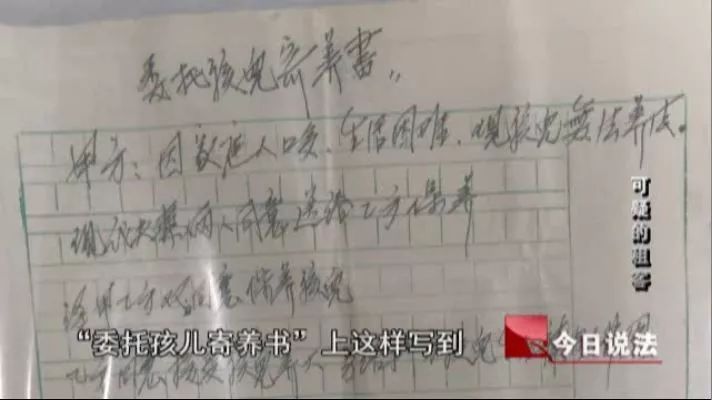 委托孩儿寄养书
甲方：因家庭人口多、生活困难、现孩儿無法养成。
现我夫妻两人同意送给乙方保养
经甲乙方双同意领养孩儿
乙方同意接受孩儿
“委托孩儿寄养书”上这样写到
可疑的租客
今日说法